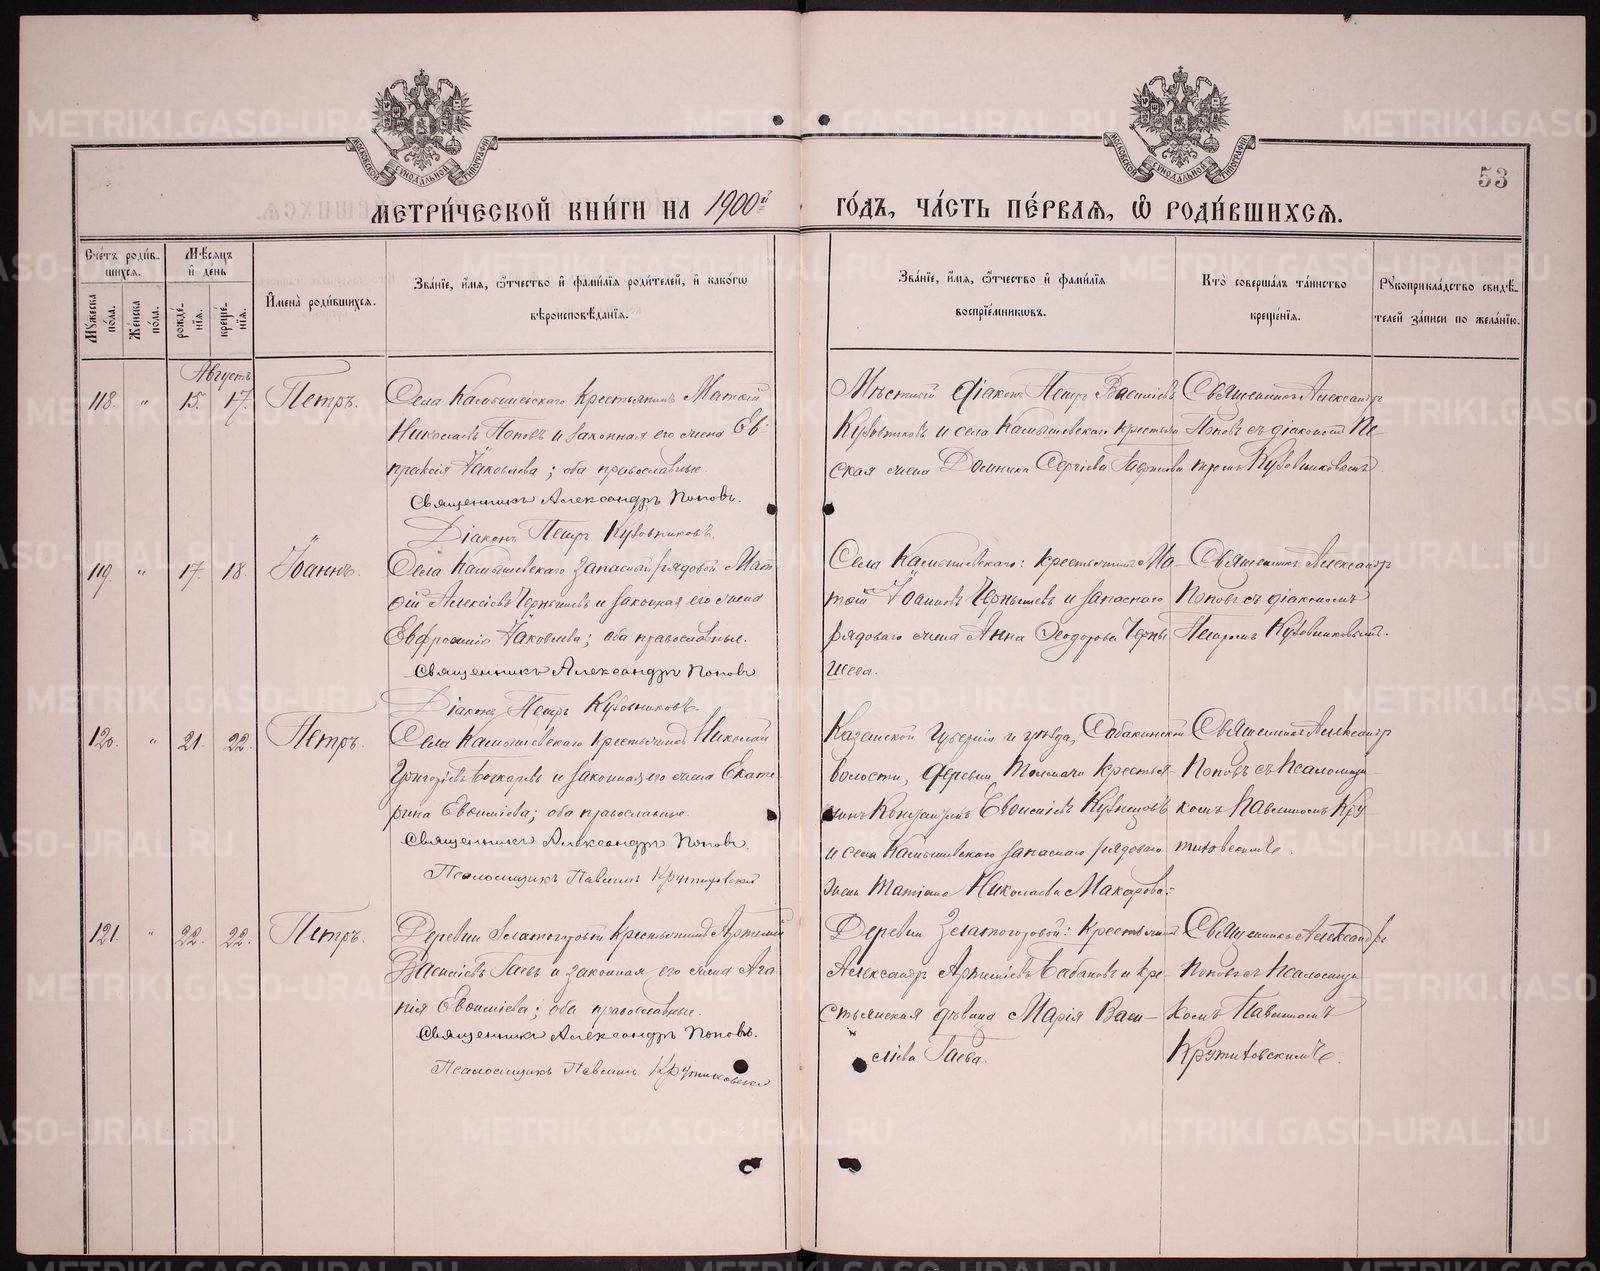 53
МЕТРИ́ЧЕСКОЙ КНИ́ГИ НА 1900й ГО́ДЪ, ЧА́СТЬ ПЕ́РВАЯ, Ѿ РОДИ́ВШИХСЯ.
Сче́тъ роди́вшихся.
Мꙋ́жеска по́ла.
Же́нска по́ла.
Мѣ́сяцъ и де́нь
рожде́нїя.
креще́нїя.
И́мена̀ роди́вшихся.
Зва́нїе, и́мя, ѻ́тчество и фами́лїя роди́телей, и како́гѡ
вѣроисповѣ́данїя.
Зва́нїе, и́мя, ѻ́тчество и фами́лїя
воспрїе́мникѡвъ.
Кто̀ соверша́лъ та́инство
креще́нїя.
Рꙋкоприкла́дство свидѣ́-
телей за́писи по жела́нїю.
Августъ
118. " 15. 17. Петръ.
Села Камышевскаго крестьянинъ Матѳій
Николаевъ Поповъ и законная его жена Ев-
праксія Іаковлева; оба православные.
Священникъ Александръ Поповъ.
Діаконъ Петръ Кузовниковъ.
Мѣстный діаконъ Петръ Васильевъ
Кузовниковъ и села Камышевскаго крестьян
ская жена Домника Сергіева
Священникъ Александръ
Поповъ съ діакономъ Пе-
тромъ Кузовниковымъ.
119. " 17. 18. Іоаннъ.
Села Камышевскаго запасный рядовой Мат
ѳій Алексіевъ Чернышевъ и законная его жена
Евфросинія Іаковлева; оба православные.
Священникъ Александръ Поповъ
Діаконъ Петръ Кузовниковъ.
Села Камышевскаго: крестьянинъ Ма-
тѳій Іоанновъ Чернышевъ и запаснаго
рядоваго жена Анна Ѳеодорова Черны
шева.
Священникъ Александръ
Поповъ съ діакономъ
Петромъ Кузовниковымъ.
120. " 21. 22. Петръ.
Села Камышевскаго крестьянинъ Николай
Григоріевъ Бочкаревъ и законная его жена Екате-
рина Евѳиміева; оба православные.
Священникъ Александръ Поповъ.
Псаломщикъ Павлинъ Крутиховскій
Казанской губерніи и уѣзда, Собакинской
волости, деревни крестья-
нинъ Евѳиміевъ Кузнецовъ
и села Камышевскаго запаснаго рядоваго
жена Татіана Николаева Макарова.
Священникъ Александръ
Поповъ съ псаломщи-
комъ Павлиномъ Кру-
тиховскимъ.
121. " 22. 22. Петръ.
Деревни Златогоровой крестьянинъ Артемій
Василіевъ Гаевъ и законная его жена Ага-
пія Евѳиміева; оба православные.
Священникъ Александръ Поповъ.
Псаломщикъ Павлинъ Крутиховскій
Деревни Златогоровой: крестьянинъ
Александръ Артеміевъ Бабановъ и кре-
стьянская дѣвица Марія Васи-
ліева Гаева.
Священникъ Александръ
Поповъ съ псаломщи
комъ Павлиномъ
Крутиховскимъ.
METRIKI.GASO-URAL.RU